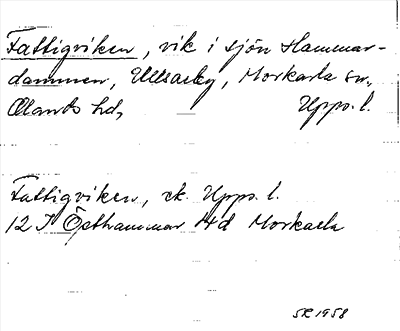 Fattigviken, vik i sjön Hammar-
dammen, Ullsarby, Morkarla sn.,
Olands hd, Upps. l.
Fattigviken, ek. Upps. l.
12 I Östhammar 4d Morkarla
SR 1958